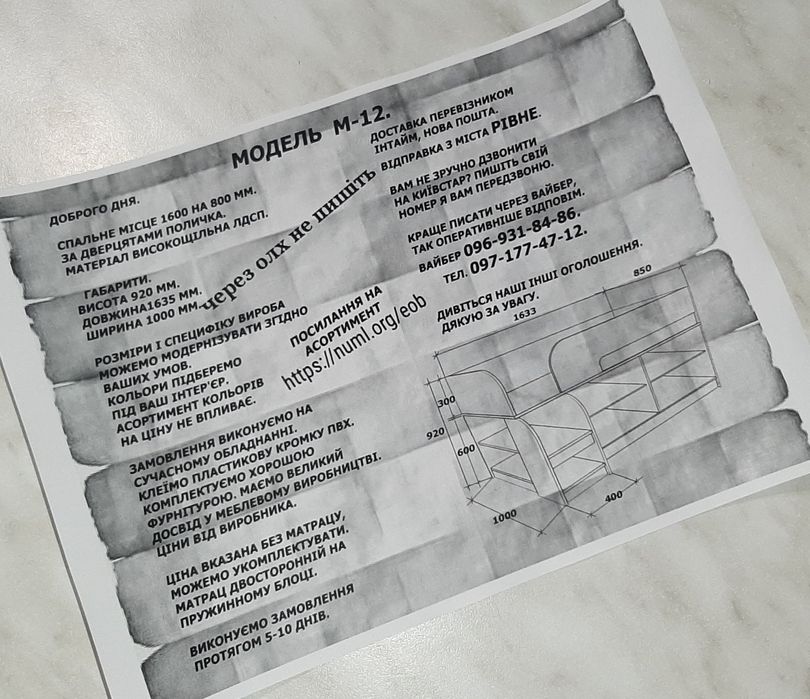 МОДЕЛЬ М-12.
ДОБРОГО ДНЯ.
СПАЛЬНЕ МІСЦЕ 1600 НА 800 ММ.
ЗА ДВЕРЦЯТАМИ ПОЛИЧКА.
МАТЕРІАЛ ВИСОКОЩІЛЬНА ЛДСП.
ГАБАРИТИ.
ВИСОТА 920 ММ.
ДОВЖИНА1635 ММ.
ШИРИНА 1000 ММ.
РОЗМІРИ І СПЕЦИФІКУ ВИРОБА
МОЖЕМО МОДЕРНІЗУВАТИ ЗГІДНО
ВАШИХ УМОВ.
КОЛЬОРИ ПІДБЕРЕМО
ПІД ВАШ ІНТЕР'ЄР.
АСОРТИМЕНТ КОЛЬОРІВ
НА ЦІНУ НЕ ВПЛИВАЄ.
ЗАМОВЛЕННЯ ВИКОНУЄМО НА
СУЧАСНОМУ ОБЛАДНАННІ.
КЛЕЇМО ПЛАСТИКОВУ КРОМКУ ПВХ.
КОМПЛЕКТУЄМО ХОРОШОЮ
ФУРНІТУРОЮ. МАЄМО ВЕЛИКИЙ
ДОСВІД У МЕБЛЕВОМУ ВИРОБНИЦТВІ.
ЦІНИ ВІД ВИРОБНИКА.
ЦІНА ВКАЗАНА БЕЗ МАТРАЦУ,
МОЖЕМО УКОМПЛЕКТУВАТИ.
МАТРАЦ ДВОСТОРОННІЙ НА
ПРУЖИННОМУ БЛОЦІ.
ВИКОНУЄМО ЗАМОВЛЕННЯ
ПРОТЯГОМ 5-10 ДНІВ.
через олх не пишіть
ПОСИЛАННЯ НА
АСОРТИМЕНТ
https://numl.org/eob
ДОСТАВКА ПЕРЕВІЗНИКОМ
ІНТАЙМ, НОВА ПОШТА.
ВІДПРАВКА З МІСТА РІВНЕ.
ВАМ НЕ ЗРУЧНО ДЗВОНИТИ
НА КИЇВСТАР? ПИШІТЬ СВІЙ
НОМЕР Я ВАМ ПЕРЕДЗВОНЮ.
КРАЩЕ ПИСАТИ ЧЕРЕЗ ВАЙБЕР,
ТАК ОПЕРАТИВНІШЕ ВІДПОВІМ.
ВАЙБЕР 096-931-84-86.
ТЕЛ. 097-177-47-12.
ДИВІТЬСЯ НАШІ ІНШІ ОГОЛОШЕННЯ.
ДЯКУЮ ЗА УВАГУ.
1633
850
300
920
600
1000
400